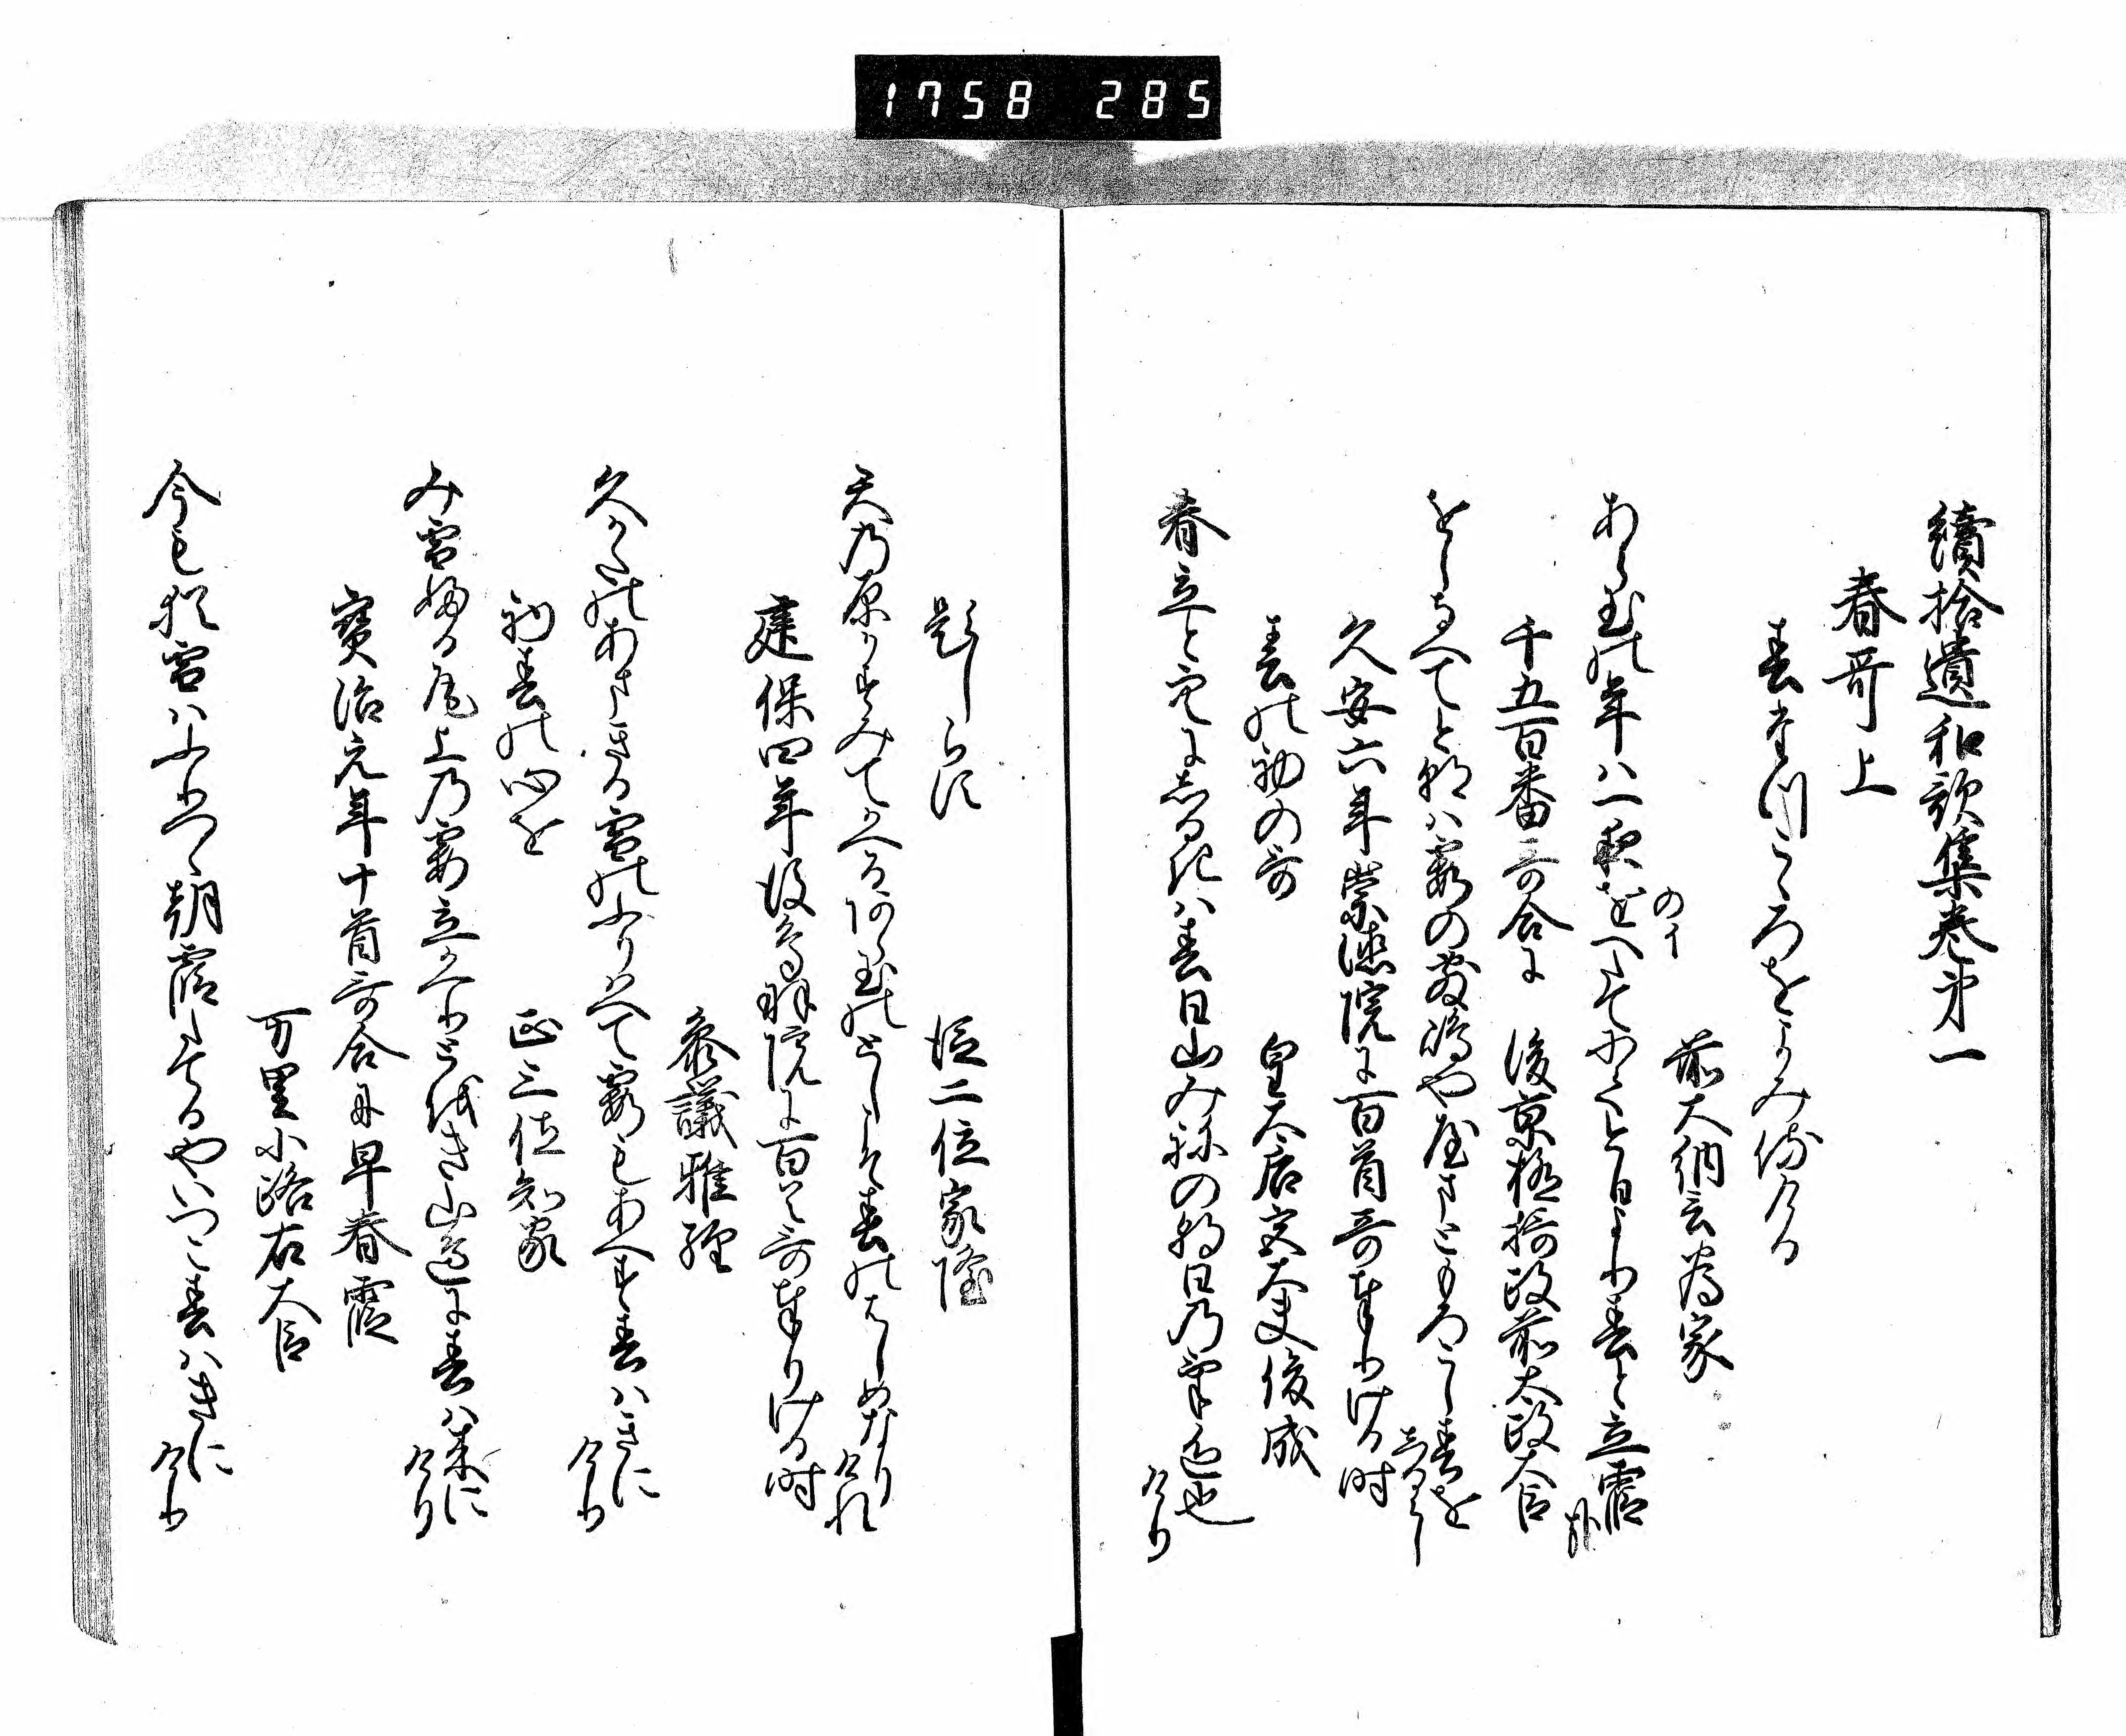 1758 285
續拾遺和歌集巻第一
春哥上
春たつこゝろをよみ侍ける
前大納言為家
あら玉の年は一夜をへたてにてけふより春と立霞かな
のイ
千五百番哥合に 後京極摂政前太政大臣
をしなへてけさは霞の敷嶋ややまともろこし春をしるらし
久安六年崇徳院に百首哥奉りける時
春の初の哥 皇太后宮大夫俊成
春立と空にしるきは春日山みねの朝日の気色也けり
題しらす 従二位家隆
天の原かすみてかへるあら玉のとしこそ春のはしめなりけれ
建保四年後鳥羽院に百首哥奉りける時
参議雅経
久かたのあまきる雪のふりはへて霞もあへす春はきにけり
初春の心を 正三位知家
み雪ふる尾上の霞立かへりとを山辺に春は来にけり
寳治元年十首哥合に早春霞
万里小路右大臣
今も猶雪はふりつゝ朝霞たてるやいつこ春はきにけり